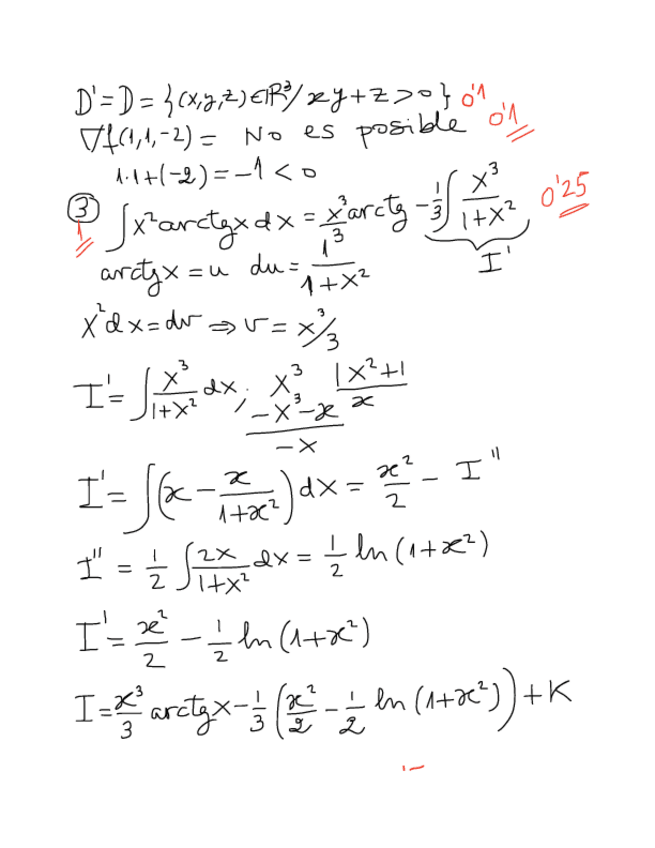 D'=D={(x,y,z)∈ℝ³/xy+z>0} 0'1
∇f(1,1,-2) = No es posible 0'1
1·1+(-2)=-1<0
③ ∫x²arctgx dx = x³/3 arctg - 1/3 ∫ x³/(1+x²) 0'25
1 I'
arctgx = u du = 1/(1+x²)
x²dx=dv ⇒ v = x³/3
I' = ∫ x³/(1+x²) dx; x³ |x²+1
-x³-x x
-x
I' = ∫(x - x/(1+x²))dx = x²/2 - I''
I'' = 1/2 ∫ 2x/(1+x²) dx = 1/2 ln(1+x²)
I' = x²/2 - 1/2 ln(1+x²)
I = x³/3 arctgx - 1/3 (x²/2 - 1/2 ln(1+x²)) + K